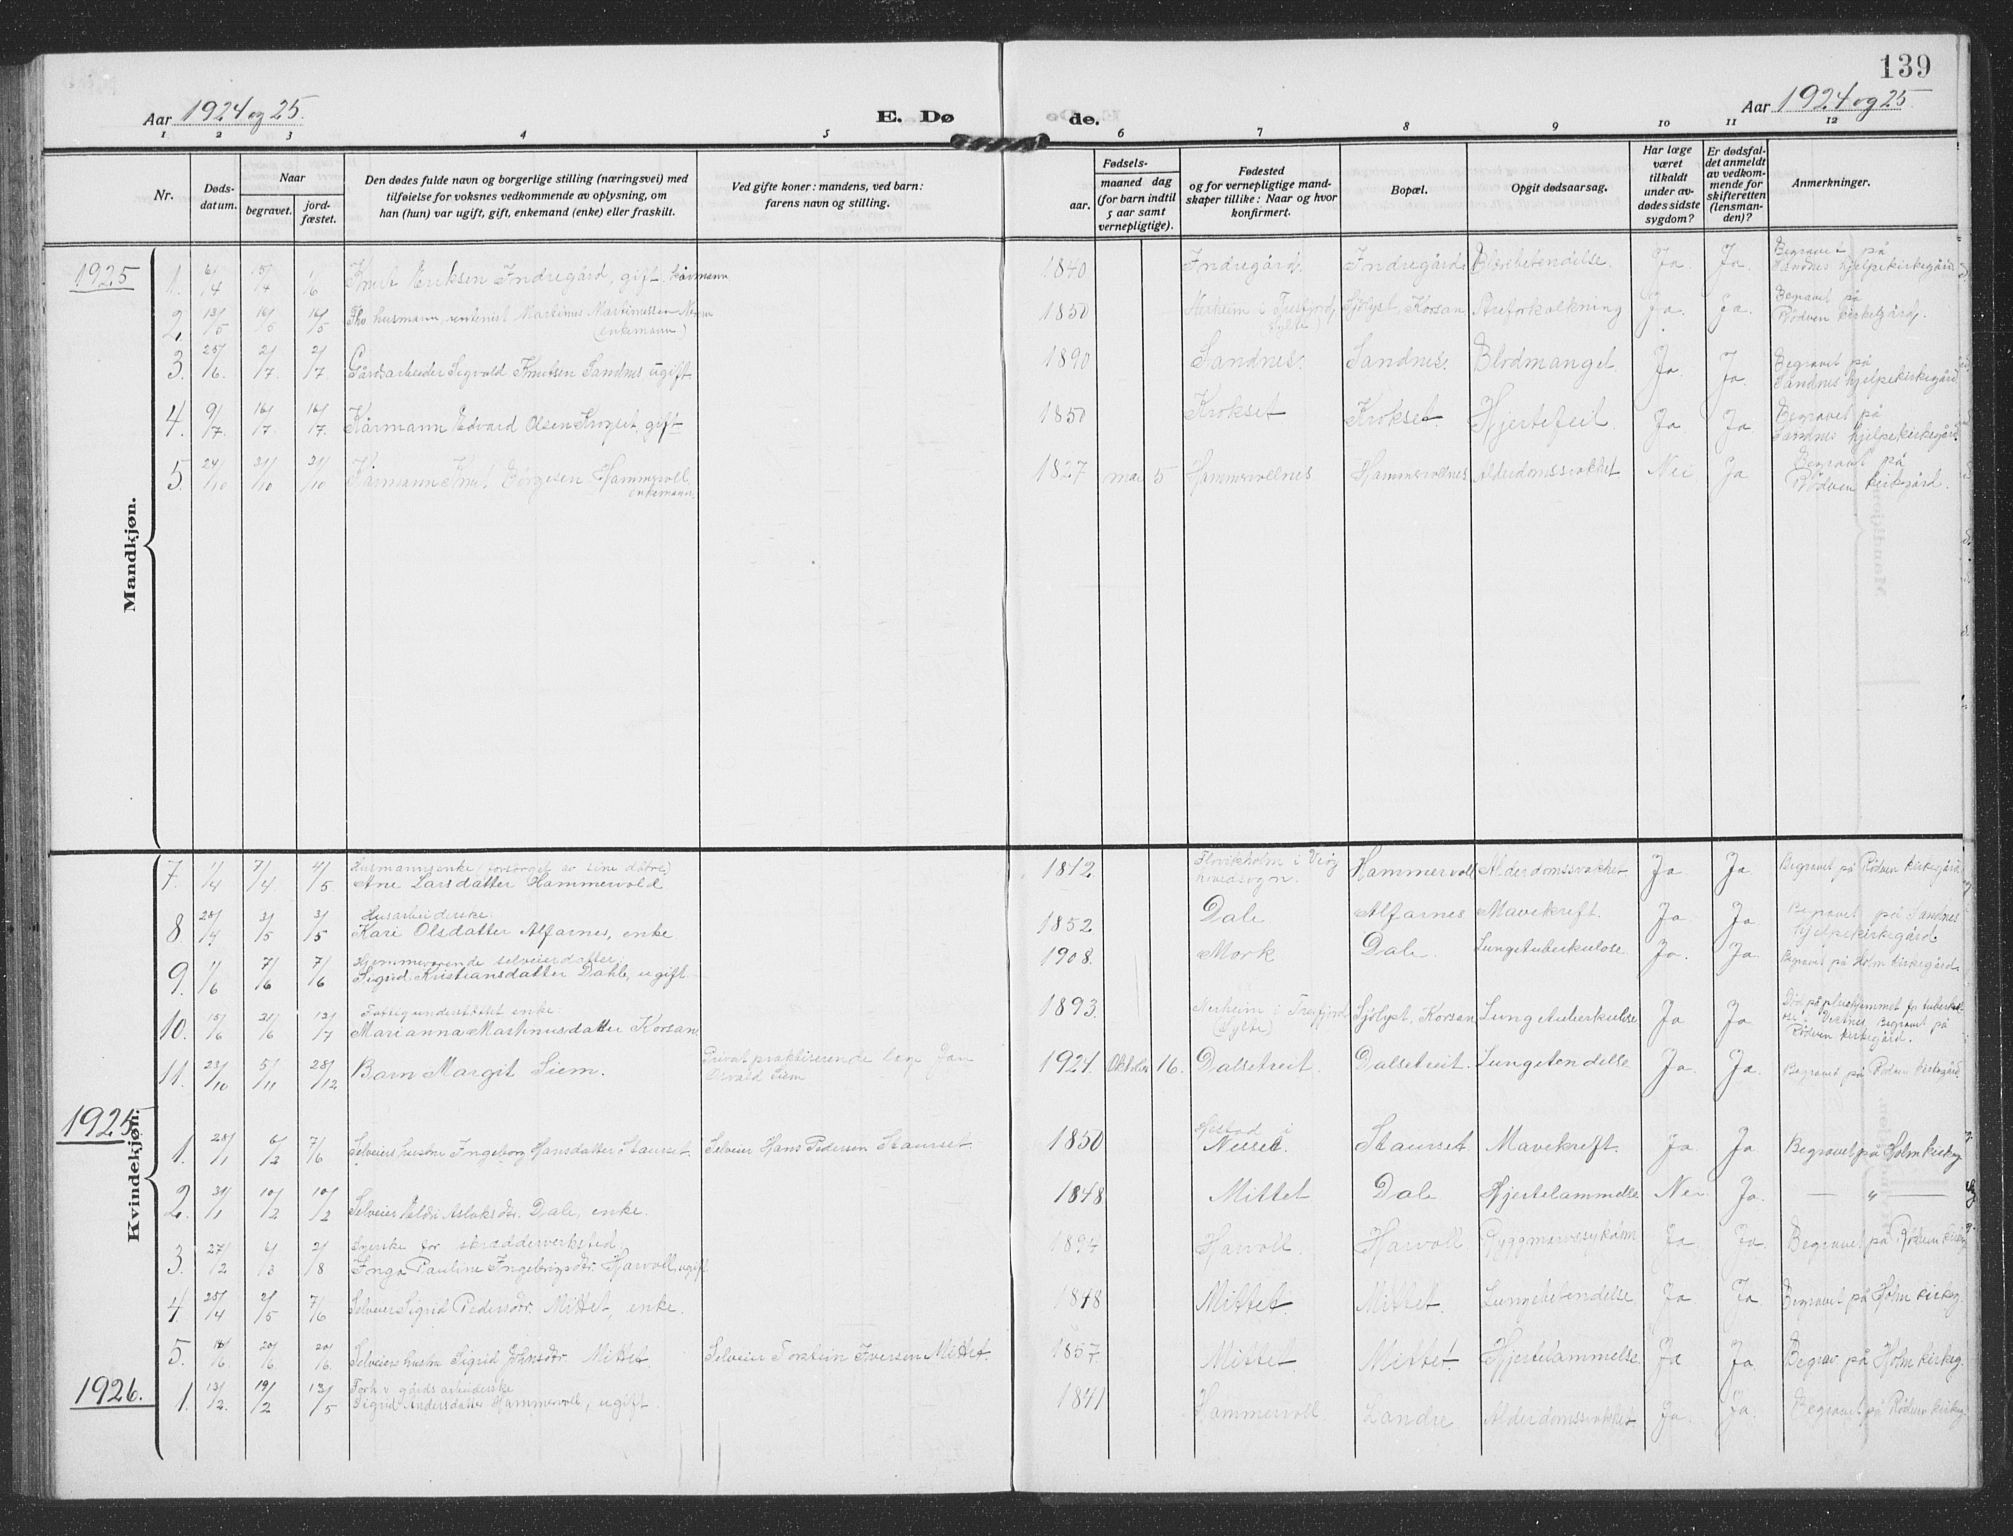 139
Aar 1924 og 25.
E. Dø
de.
Aar 1924 og 25
1 2 3 4 5 6 7 8 9 10 11 12
Nr.
Døds-
datum.
Naar
begravet.
jord-
fæstet.
Den dødes fulde navn og borgerlige stilling (næringsvei) med
tilføielse for voksnes vedkommende av oplysning, om
han (hun) var ugift, gift, enkemand (enke) eller fraskilt.
Ved gifte koner: mandens, ved barn:
farens navn og stilling.
Fødsels-
aar.
maaned dag
(for barn indtil
5 aar samt
vernepligtige).
Fødested
og for vernepligtige mand-
skaper tillike: Naar og hvor
konfirmert.
Bopæl.
Opgit dødsaarsag.
Har læge
været
tilkaldt
under av-
dødes sidste
sygdom?
Er dødsfal-
det anmeldt
av vedkom-
mende for
skifteretten
(lensman-
den)?
Anmerkninger.
Mandkjøn.
1925
1. 6/4 15/4 1/6 Knut Eriksen Indregård, gift. Kårmann 1840 Indregård. Indregård. Blærebetendelse. Ja. Ja. Begravet på
Sandnes hjelpekirkegård
2. 13/5 16/5 16/5 Fho. husmann, rentenist Martinus Martinussen
(enkemann) 1850 Nerheim i Tresfjord
Sylte Sjølyst, Korsan Åreforkalkning Ja. Ja. Begravet på
Rødven kirkegård.
3. 25/6 2/7 2/7 Gårdsarbeider Sigvald Knutsen Sandnes ugift 1890 Sandnes. Sandnes. Blodmangel Ja. Ja. Begravet på
Sandnes hjelpekirkegård
4. 9/7 16/7 16/7 Kårmann Edvard Olsen Krokset, gift 1850 Krokset Krokset. Hjertefeil. Ja Ja. Begravet på
Sandnes hjelpekirkegård.
5. 24/10 31/10 31/10 Kårmann Knut Børgesen Hammervoll,
enkemann 1827 mai 5 Hammervollnes Hammervollnes Alderdomssvakhet Nei Ja Begravet på
Rødven kirkegård.
Kvindekjøn.
7. 1/4 7/4 4/5 Husmannsenke (forsørget av sine døtre)
Ane Larsdatter Hammervold 1842 i Veøy
hovedsogn. Hammervoll Alderdomssvakhet Ja Ja. Begravet på Rødven kirkegård
8. 28/4 3/5 3/5 Husarbeiderske.
Kari Olsdatter Alfarnes, enke 1852 Dale Alfarnes Mavekreft. Ja. Ja Begravet på Sandnes
hjelpekirkegård.
9. 1/6 7/6 7/6 Hjemmeværende selveierdatter.
Sigrid Kristiansdatter Dahle, ugift 1908. Mork Dale. Lungetuberkulose Ja. Ja. Begravet på Holm kirkegård.
10. 15/6 21/6 13/7 Fattigunderstøttet enke.
Marianna Martinusdatter Korsan 1893. Nerheim i Tresfjord
(Sylte) Sjølyst, Korsan Lungetuberkulose Ja Ja Død på pleiehjemmet for tuberkul-
ose, Begravet på
Rødven kirkegård.
11. 23/10 5/11 28/12 Barn Margit Siem. Privatpraktiserende læge Jan
Siem 1924. Oktober 16. Dalsetreit. Dalsetreit. Lungetendelse Ja Ja. Begravet på Rødven kirkegård.
1925
1. 28/1 6/2 7/6 Selveiers hustru Ingeborg Hansdatter Staurset. Selveier Hans Pedersen Staurset 1850 i
Nesset Staurset. Mavekreft. Ja Ja Begravet på Holm kirkeg
2. 31/1 10/2 10/2 Selveier Aslaksdtr. Dale, enke. 1848 Mittet Dale Hjertelammelse Nei. Ja. — " —
3. 27/2 6/3 2/8 Syerske for skrædderverksted
Inga Pauline Ingebrigtsdtr. Harvoll, ugift 1894 Harvoll. Harvoll Ryggmarvssykdom Ja. Ja. Begravet på Rødven kirkeg
4. 25/4 2/5 7/6 Selveier Sigrid Pedersdtr. Mittet, enke. 1848 Mittet Mittet. Lungebetendelse Ja Ja Begravet på Holm kirkeg
5. 16/6. 20/6. 20/6. Selveiers hustru Sigrid Johnsdtr. Mittet. Selveier Torstein Iversen Mittet. 1857 Mittet Mittet. Hjertelammelse. Ja Ja Begrav på Holm kirkeg.
1926.
1. 13/2. 19/2 13/5 Forh.v. gårdsarbeiderske
Sigrid Andersdatter Hammervoll, ugift. 1841 Hammervoll Landre Alderdomssvakhet Ja. Ja. Begravet på Rødven kirkeg.